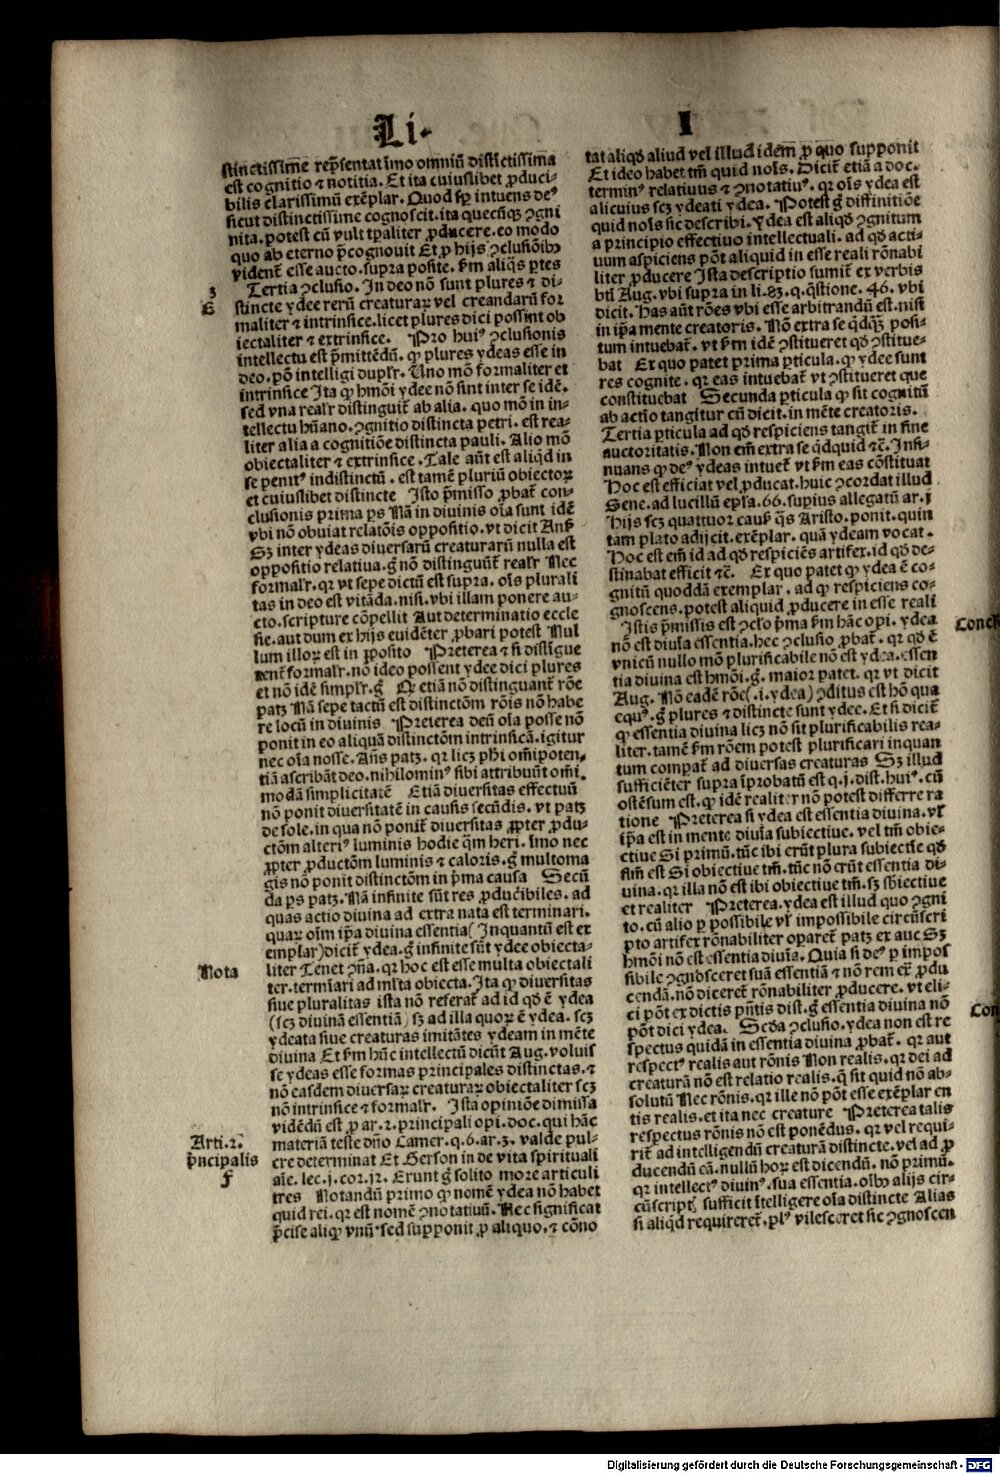 Li. I
stinctissime rep̄sentat īmo omniū distīctissima
est cognitio ⁊ notitia. Et ita cuiuslibet ꝓduci-
bilis clarissimū exēplar. Quod sp̄ intuens deꝰ
sicut distinctissime cognoscit. ita quecūqꝫ ꝯgni
nita. potest cū vult tp̄aliter ꝓducere. eo modo
quo ab eterno p̄cognouit Et ꝓ hijs ꝯclusiōibꝰ
vident̄ esse aucto. supra posite. ẜm aliq̄s ꝑtes
3
E
Tertia ꝯclusio. In deo nō sunt plures ⁊ di-
stincte ydee rerū creaturaꝝ vel creandarū for
maliter ⁊ intrinsice. licet plures dici possint ob
iectaliter ⁊ extrinsice. Pro huiꝰ ꝯclusionis
intellectu est p̄mittēdū. ꝙ plures ydeas esse in
deo. pōt intelligi duplr̄. Uno mō formaliter et
intrinsice Ita ꝙ hmōi ydee nō sint inter se idē.
sed vna realr̄ distinguit̄ ab alia. quo mō in in-
tellectu hūano. ꝯgnitio distincta petri. est rea-
liter alia a cognitiōe distincta pauli. Alio mō
obiectaliter ⁊ extrinsice. Tale aūt est aliqd in
se penitꝰ indistinctū. est tamē pluriū obiectoꝝ
et cuiuslibet distincte Isto p̄misso ꝓbat̄ con-
clusionis prima ps Nā in diuinis oīa sunt idē
vbi nō obuiat relatōis oppositio. vt dicit Anß
Sꝫ inter ydeas diuersarū creaturarū nulla est
oppositio relatiua. g̊ nō distinguūt̄ realr̄ Nec
formalr̄. qr vt sepe dictū est supra. oīs plurali
tas in deo est vitāda. nisi. vbi illam ponere au-
cto. scripture cōpellit Aut determinatio eccle
sie. aut dum ex hijs euidēter ꝓbari potest Nul
lum illoꝝ est in ꝓposito Preterea ⁊ si distīgue
rent̄ formalr̄. nō ideo possent ydee dici plures
et nō idē simplr̄. g̊ Qꝫ etiā nō distinguant̄ rōe
patꝫ Nā sepe tactū est distinctōm rōis nō habe
re locū in diuinis Preterea deū oīa posse nō
ponit in eo aliquā distinctōm intrinsicā. igitur
nec oīa nosse. Añs patꝫ. qr licꝫ phi oīmpoten-
tiā ascribāt deo. nihilominꝰ sibi attribuūt oīm.
modā simplicitatē Etiā diuersitas effectuū
nō ponit diuersitatē in causis secūdis. vt patꝫ
de sole. in qua nō ponit̄ diuersitas ꝓpter ꝓdu-
ctōm alteriꝰ luminis hodie q̄m heri. īmo nec
ꝓpter ꝓductōm luminis ⁊ caloris. g̊ multoma
gis nō ponit distinctōm in p̄ma causa Secū
da ps patꝫ. Nā infinite sūt res ꝓducibiles. ad
quas actio diuina ad extra nata est terminari.
quaꝝ oīm ip̄a diuina essentia (Inquantū est ex
emplar) dicit̄ ydea. g̊ infinite sūt ydee obiecta-
Nota
liter Tenet ꝯñа. qr hoc est esse multa obiectali
ter. termīari ad mlta obiecta. Ita ꝙ diuersitas
siue pluralitas ista nō referat̄ ad id qd ē ydea
(scꝫ diuinā essentiā) sꝫ ad illa quoꝝ ē ydea. scꝫ
ydeata siue creaturas imitātes ydeam in mēte
diuina Et ẜm hūc intellectū dicūt Aug. voluis
se ydeas esse formas principales distinctas. ⁊
nō easdem diuersaꝝ creaturaꝝ obiectaliter scꝫ
nō intrinsice ⁊ formalr̄. Ista opiniōe dimissa
Arti. 2.
p̄ncipalis
f
vidēdū est ꝓ ar. 2. principali opi. doc. qui hāc
materiā teste dño Camer. q. 6. ar. 3. valde pul-
cre determinat Et Gerson in de vita spirituali
aīe. lec. j. cor. j2. Erunt g̊ solito more articuli
tres Notandū primo ꝙ nomē ydea nō habet
quid rei. qr est nomē ꝯnotatiuū. Nec significat
p̄cise aliqꝙ vnū. sed supponit ꝓ aliquo. ⁊ cōno
tat aliqd aliud vel illud idem ꝓ quo supponit
Et ideo habet tm̄ quid noīs. Dicit̄ etiā a doc.
terminꝰ relatiuus ⁊ ꝯnotatiuꝰ. qr oīs ydea est
alicuius scꝫ ydeati ydea. Potest g̊ diffinitiōe
quid noīs sic describi. Ydea est aliqd ꝯgnitum
a principio effectiuo intellectuali. ad qd acti-
uum aspiciens pōt aliquid in esse reali rōnabi
liter ꝓducere Ista descriptio sumit̄ ex verbis
bti Aug. vbi supra in li. 83. q. q̄stione. 46. vbi
dicit. Has aūt rōes vbi esse arbitrandū est. nisi
in ip̄a mente creatoris. Nō extra se q̄dqꝫ posi-
tum intuebat̄. vt ẜm idē ꝯstitueret qd ꝯstitue-
bat Ex quo patet prima ꝑticula. ꝙ ydee sunt
res cognite. qr eas intuebat̄ vt ꝯstitueret que
constituebat Secunda ꝑticula ꝙ sit cognitū
ab actio tangitur cū dicit. in mēte creatoris.
Tertia ꝑticula ad qd respiciens tangit̄ in fine
auctoritatis. Non em̄ extra se q̄dquid ⁊c̄. Insi-
nuans ꝙ deꝰ ydeas intuet̄ vt ẜm eas cōstituat
Hoc est efficiat vel ꝓducat. huic ꝯcordat illud
Sene. ad lucillū ep̄la. 66. supius allegatū ar. j
Hijs scꝫ quattuor causꝭ q̄s Aristo. ponit. quin
tam plato adijcit. exēplar. quā ydeam vocat.
Hoc est em̄ id ad qd respiciēs artifex. id qd de-
stinabat efficit ⁊c̄. Ex quo patet ꝙ ydea ē co-
gnitū quoddā exemplar. ad ꝙ respiciens co-
gnoscens. potest aliquid ꝓducere in esse reali
Concl
Istis p̄missis est ꝯclo p̄ma ẜm hāc opi. ydea
nō est diuīa essentia. hec ꝯclusio ꝓbat̄. qr qd ē
vnicū nullo mō plurificabile nō est ydea. essen
tia diuina est hmōi. g̊. maior patet. qr vt dicit
Aug. Nō eadē rōe (.i. ydea) ꝯditus est hō qua
equꝰ. g̊ plures ⁊ distincte sunt ydee. Et si dicit̄
ꝙ essentia diuina licꝫ nō sit plurificabilis rea-
liter. tamē ẜm rōem potest plurificari inquan
tum compat̄ ad diuersas creaturas Sꝫ illud
sufficiēter supra īprobatū est q. j. dist. huiꝰ. cū
ostēsum est. ꝙ idē realiter nō potest differre ra
tione Preterea si ydea est essentia diuina. vl̄
ip̄a est in mente diuīa subiectiue. vel tm̄ obie-
ctiue Si primū. tūc ibi erūt plura subiectīe qd
fīm est Si obiectiue tm̄. tūc nō erūt essentia di-
uina. qr illa nō est ibi obiectiue tm̄. sꝫ sbiectiue
et realiter Preterea. ydea est illud quo ꝯgni
to. cū alio ꝑ possibile vl̄ impossibile circūscri
pto artifex rōnabiliter oparet̄ patꝫ ex auc Sꝫ
hmōi nō est essentia diuīa. Quia si deꝰ ꝑ impos
sibile ꝯgnosceret suā essentiā ⁊ nō rem ex̄ ꝓdu
cendā. nō diceret̄ rōnabiliter ꝓducere. vt eli-
ci pōt ex dictis p̄ntis dist. g̊ essentia diuina nō
Con
pōt dici ydea. Scda ꝯclusio. ydea non est re
spectus quidā in essentia diuina ꝓbat̄. qr aut
respectꝰ realis aut rōnis Non realis. qr dei ad
creaturā nō est relatio realis. q̄ sit quid nō ab-
solutū Nec rōnis. qr ille nō pōt esse exēplar en
tis realis. et ita nec creature Preterea talis
respectus rōnis nō est ponēdus. qr vel requi-
rit̄ ad intelligendū creaturā distincte. vel ad ꝓ
ducendū eā. nullū hoꝝ est dicendū. nō primū.
qr intellectꝰ diuinꝰ. sua essentia. oībꝰ alijs cir-
cūscriptꝭ sufficit ītelligere oīa distincte Alias
si aliqd requireret̄. plꝰ vilesceret sic ꝯgnoscen
Digitalisierung gefördert durch die Deutsche Forschungsgemeinschaft - DFG